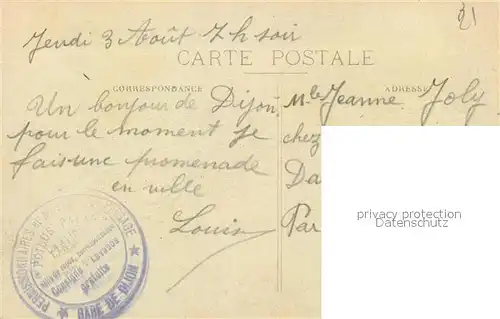 Jeudi 3 Août 7 h soir
21
CARTE POSTALE
CORRESPONDANCE
ADRESSE
Un bonjour de Dijon,
pour le moment je
fais une promenade
en ville
Louis
Mlle Jeanne Joly
chez
Da
Par
privacy protection
www.delcampe.net
PERMISSIONNAIRES
Consigne
gratuite
GARE DE DIJON